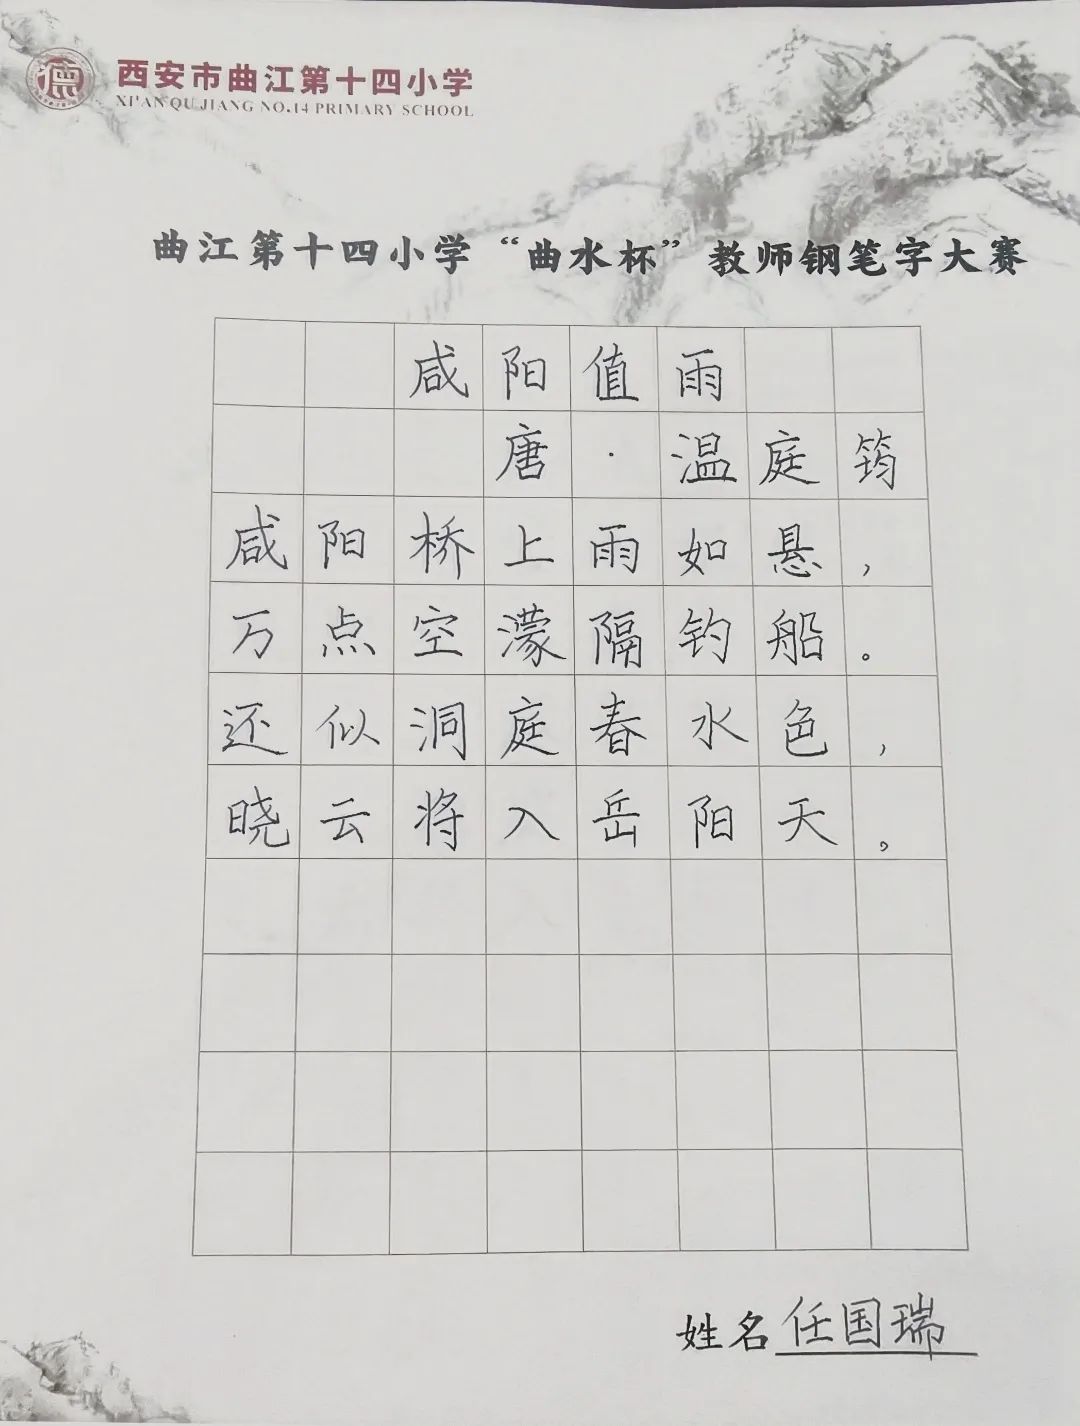 西安市曲江第十四小学
XI'AN QU JIANG NO.14 PRIMARY SCHOOL
曲江第十四小学“曲水杯”教师钢笔字大赛
咸阳值雨
唐·温庭筠
咸阳桥上雨如悬，
万点空濛隔钓船。
还似洞庭春水色，
晓云将入岳阳天。
姓名任国瑞